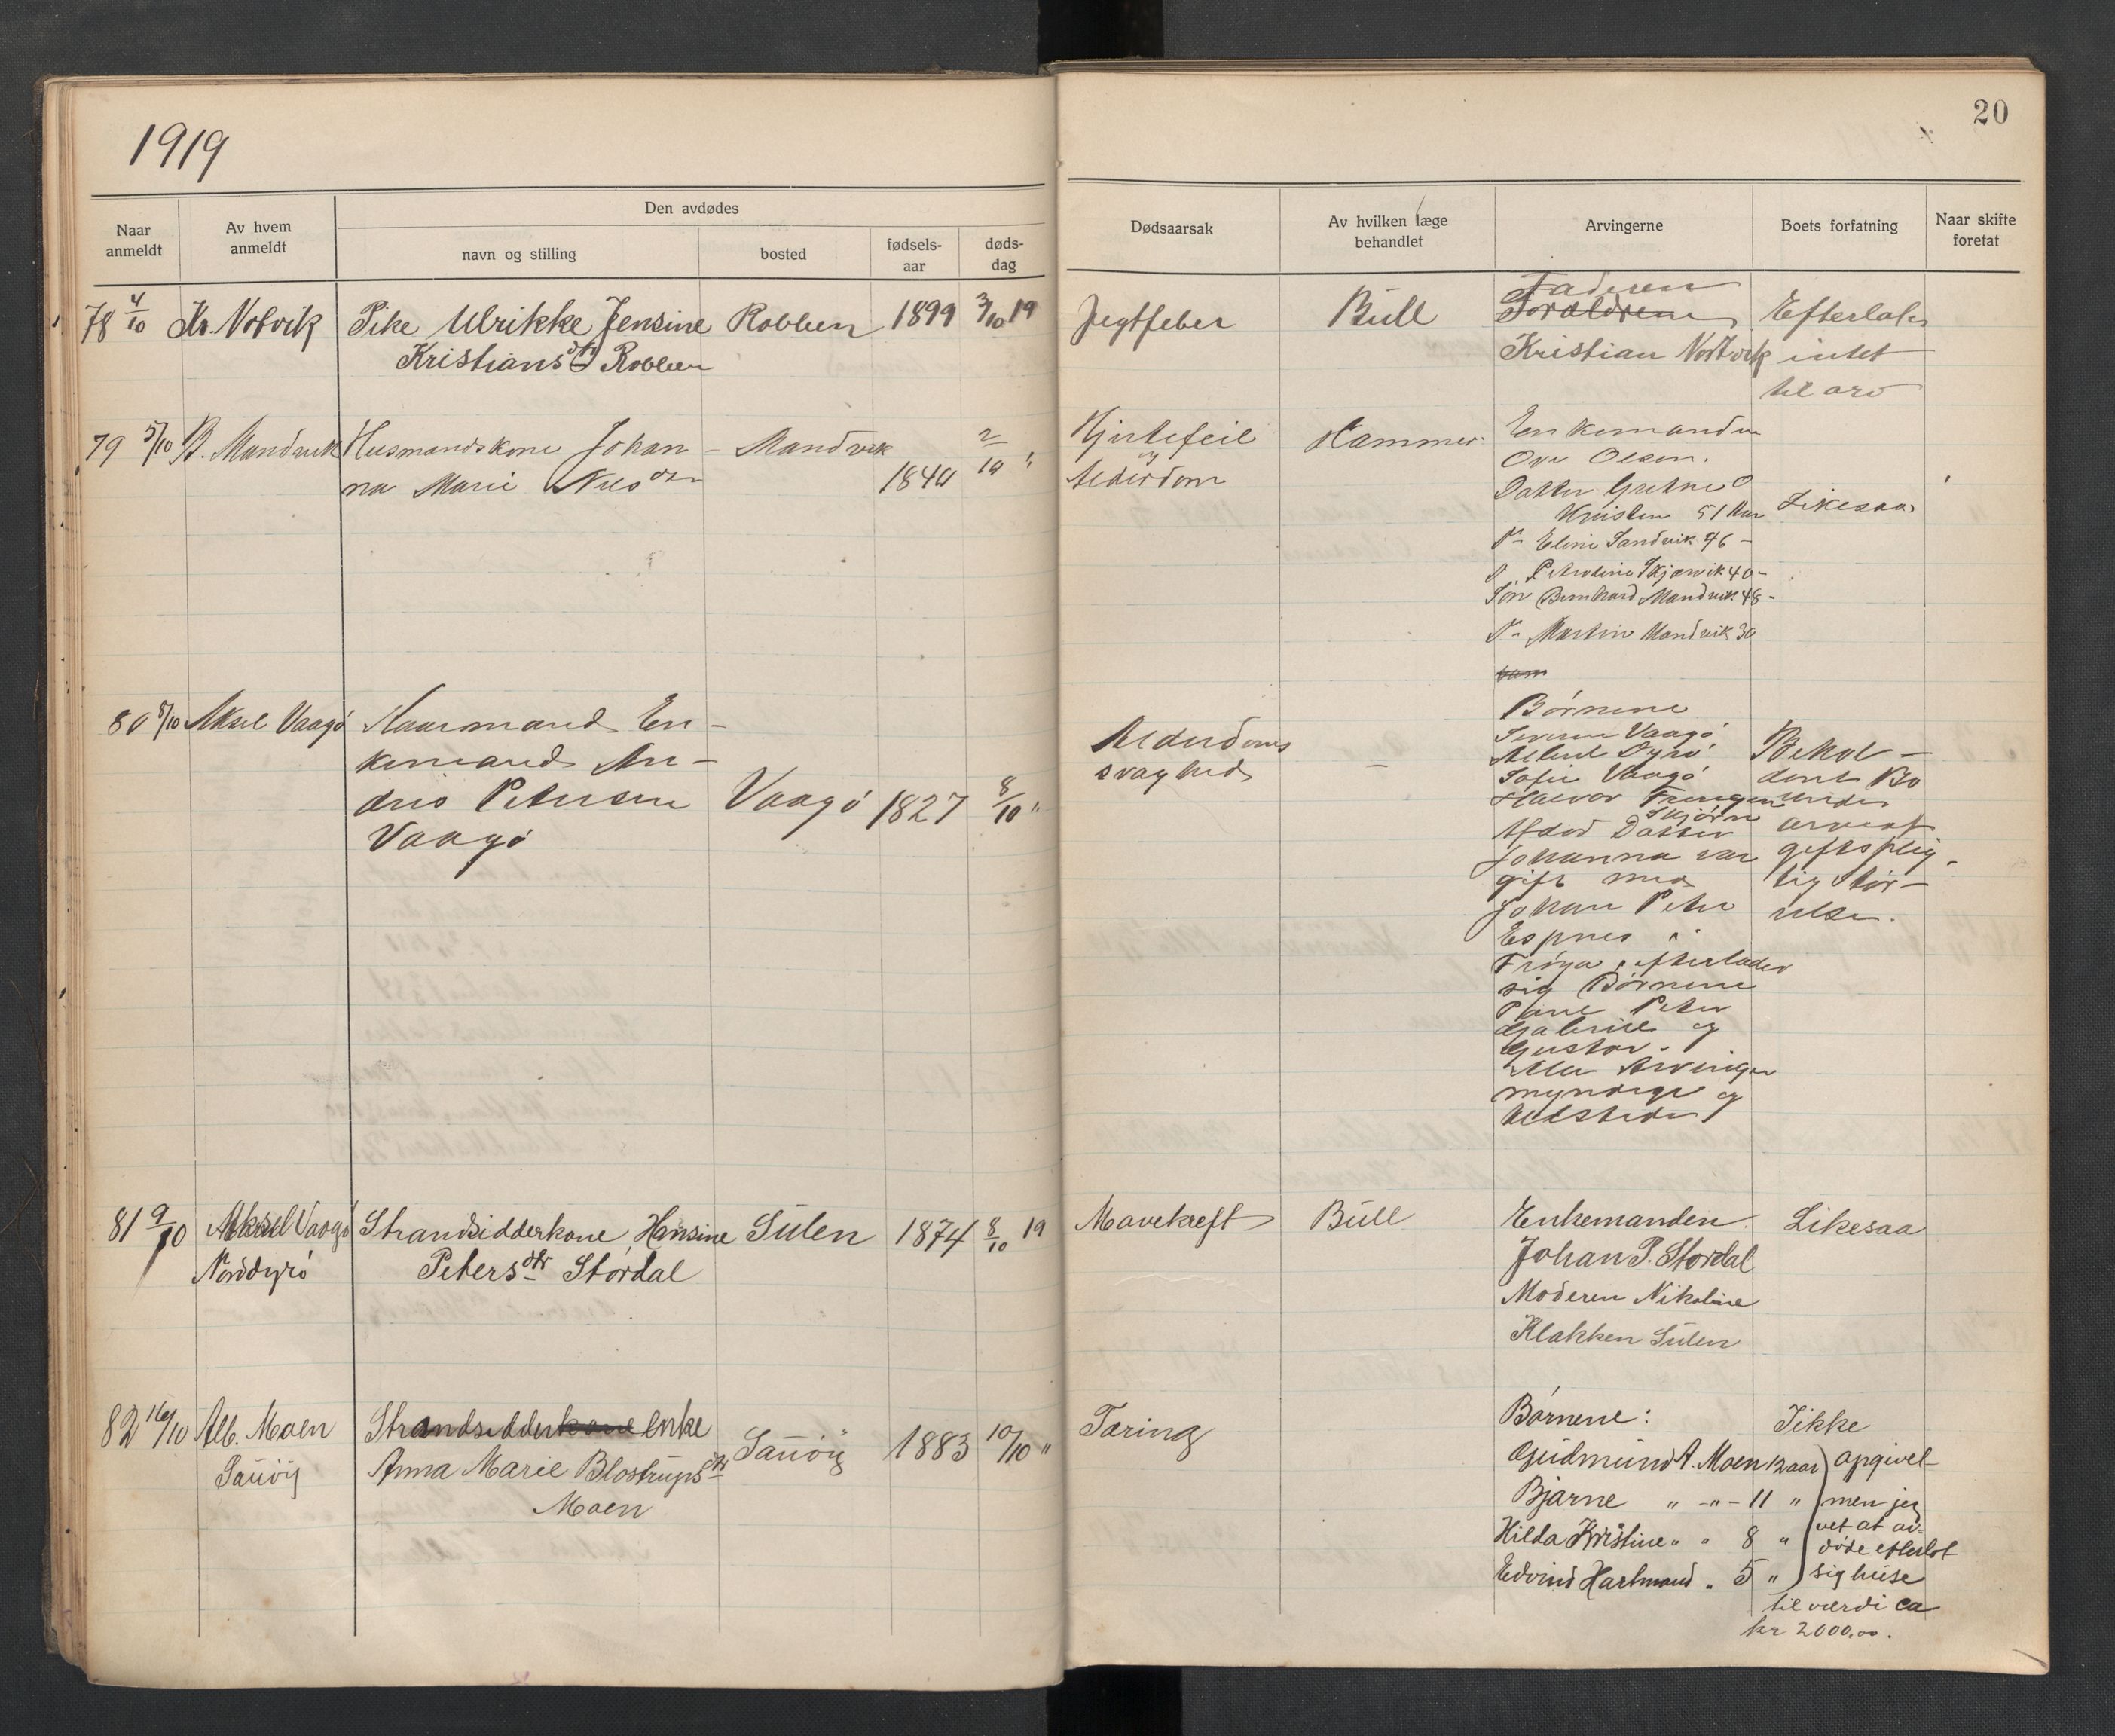 1919
20
Naar anmeldt
Av hvem anmeldt
Den avdødes
navn og stilling
bosted
fødsels-aar
døds-dag
Dødsaarsak
Av hvilken læge behandlet
Arvingerne
Boets forfatning
Naar skifte foretat
78 4/10 Kr. Votvik Pike Ulrikke Jensine Robben 1899 3/10 19
Kristiansdtr Robben
Bull
Faderen
Forældrene
Kristian
Efterlot
intet
til arv
79 5/10 B. Mandvik Husmandskone Johan- Mandvik
na Marie Nilsdtr 1840 2/10 "
Hjertefeil
og
Alderdom
Hammer
Enkemanden
Ove Olsen.
Datter
51 Aar
Likesaa
Eline Sandvik 46 -
Petroline Skjærvik 40 -
Søn Bernhard Mandvik 48 -
Martin Mandvik 30
80 8/10 Aksel Vaagø Kaarmand En-
kemand An-
dris Petersen Vaagø 1827 8/10 "
Vaagø
Alderdoms
svaghed
-
Børnene
Vaagø
Dyrø
Sofie Vaagø
Halvor
Afdød Datter
Johanna var
gift med
Johan Peter
Espnes i
Frøya, efterlader
sig Børnene
Paul Peter
Gabriel og
Gustav.
Alle Arvinger
myndige og
tilstede
Behol-
dent Bo
under
arveaf
giftsplig-
tig Stør-
relse.
81 9/10 Aksel Vaagø Strandsidderkone Hansine Sulen 1874 8/10 19
Norddyrø Petersdtr Stordal
Mavekreft Bull Enkemanden Likesaa
Johan P. Stordal
Moderen Nikoline
Klakken Sulen
82 16/10 Alb. Moen Strandsidderkone Enke
Sauøy 1883 10/10 "
Sauøy Anna Marie Blostrupsdtr
Moen
Tæring
Børnene:
Gudmund A. Moen 12 aar
Bjarne " -"- 11 "
Hilda Kristine " " 8 "
Edvind Hartmand " 5 "
Ikke
opgivet
men jeg
vet at av-
døde efterlot
sig huse
til værdi ca
kr 2000,00.